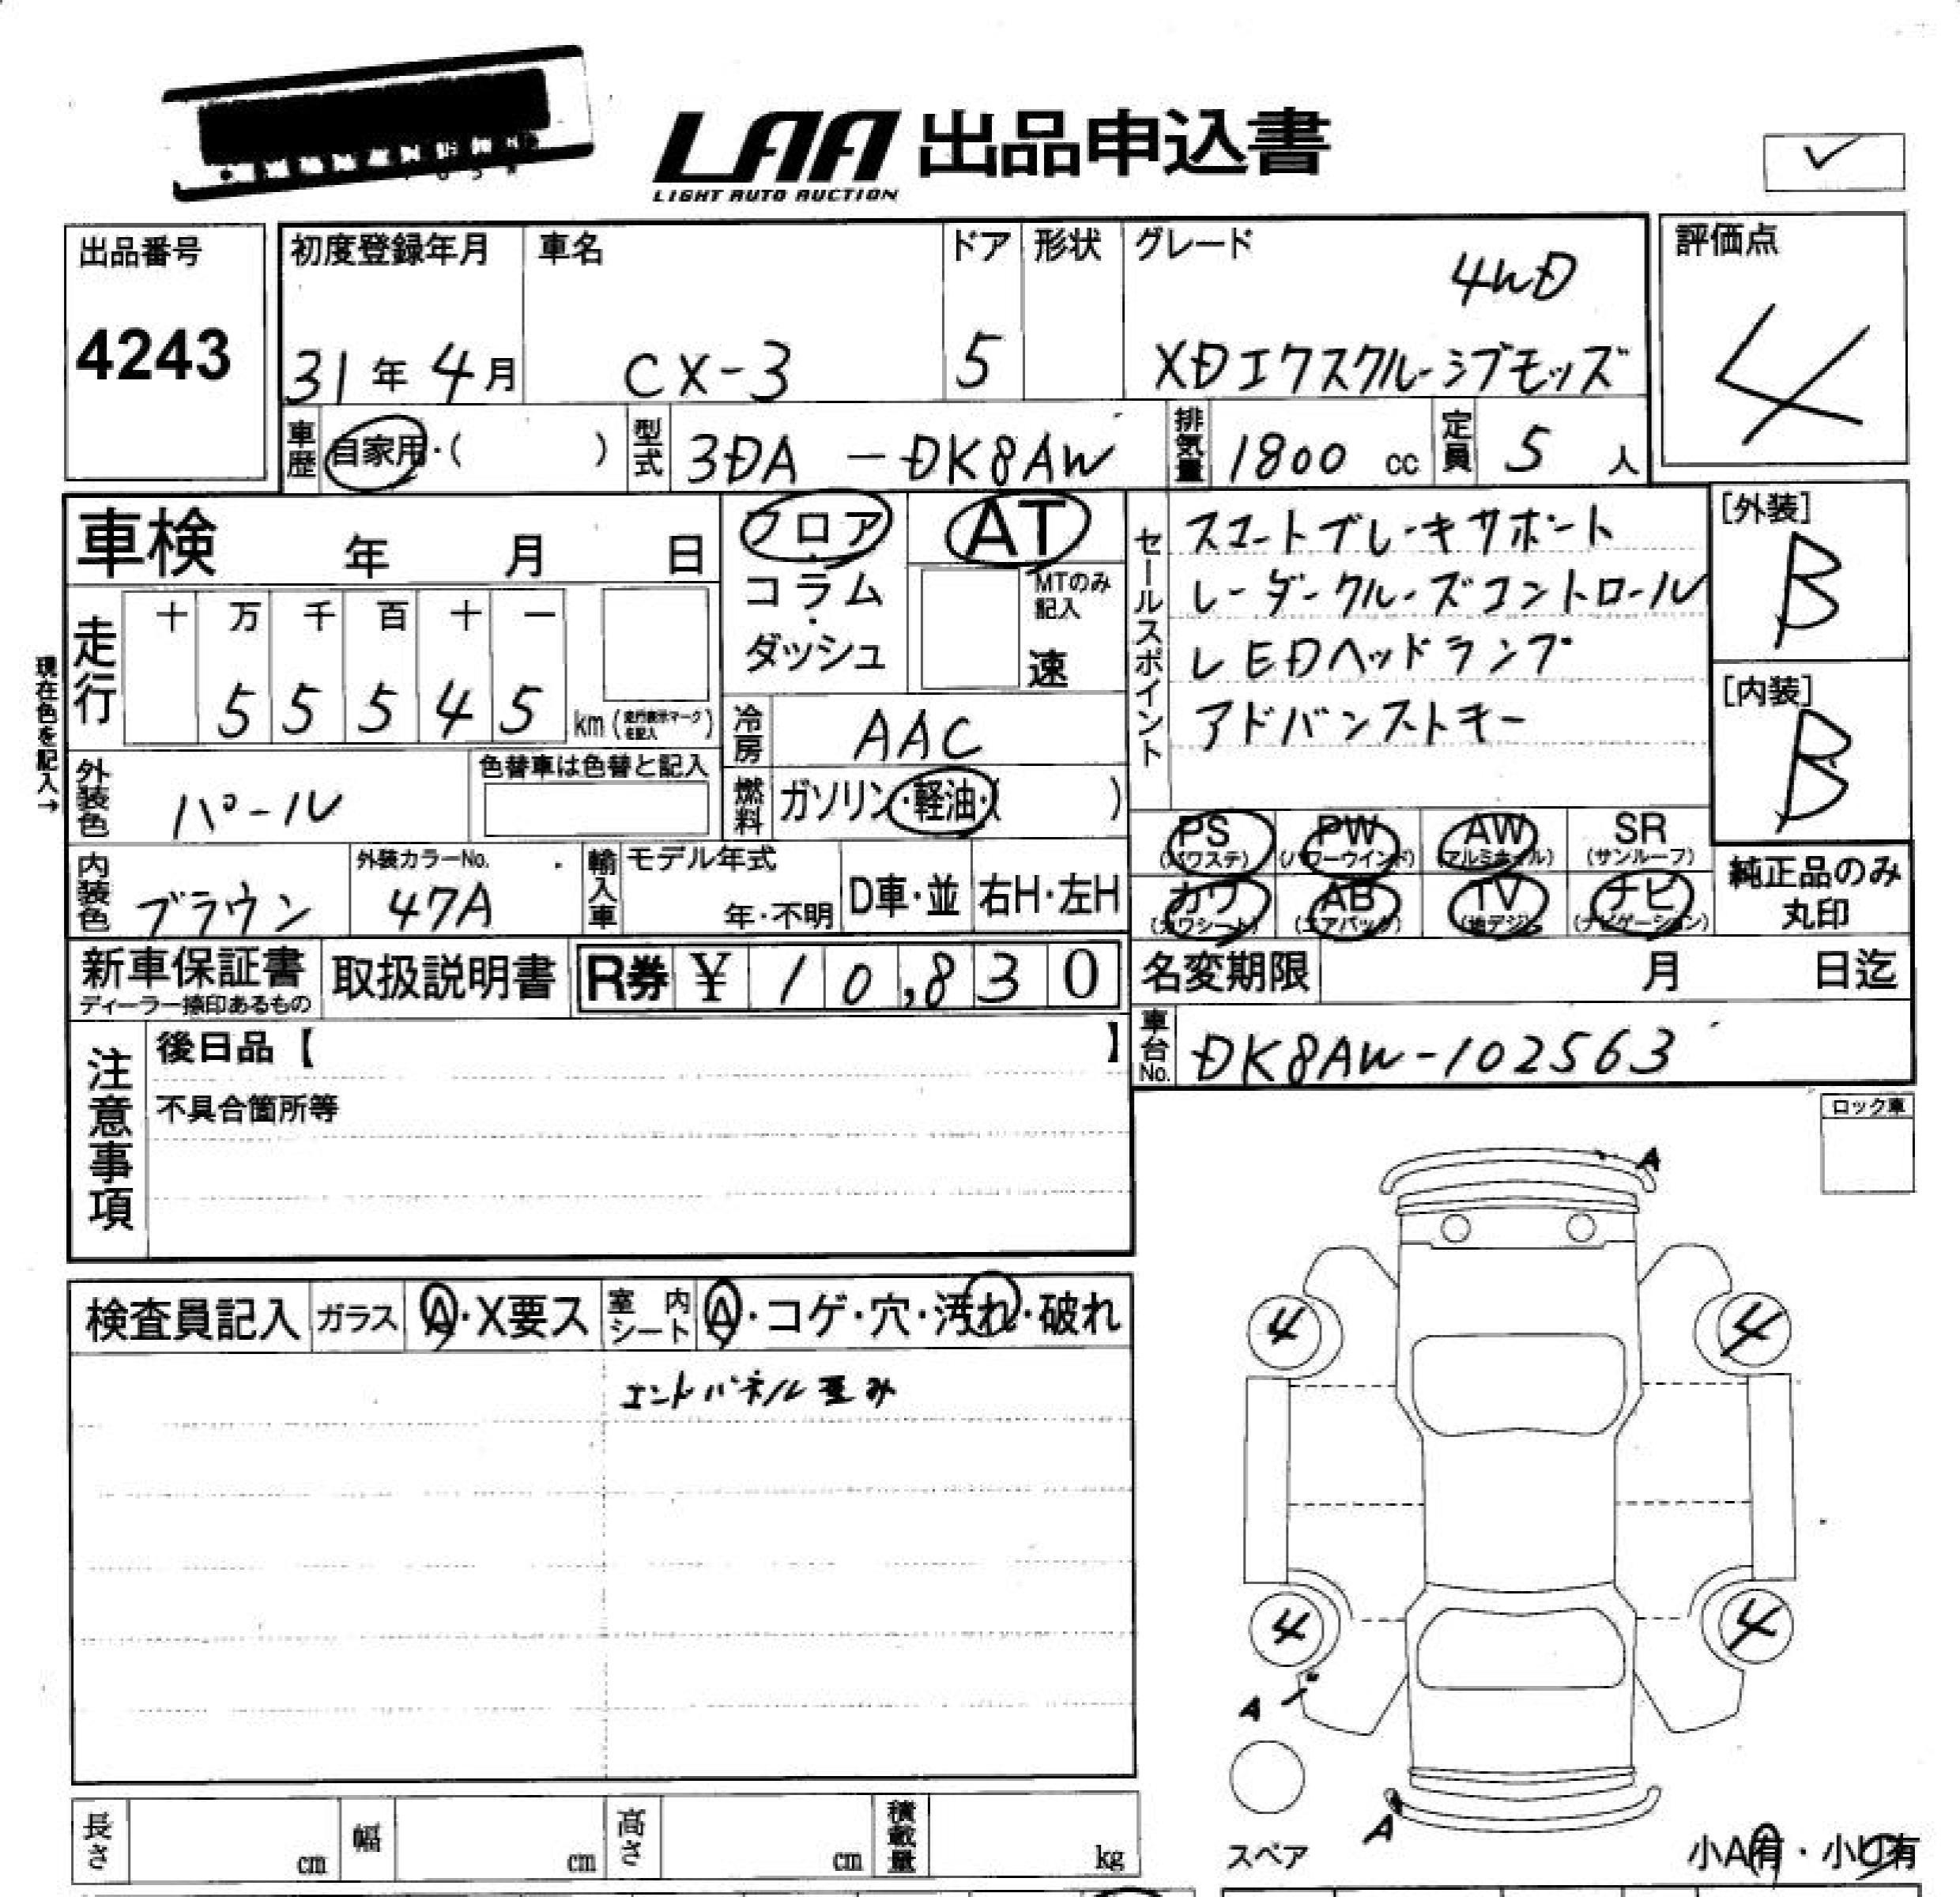 LAA 出品申込書
LIGHT AUTO AUCTION
出品番号
4243
初度登録年月
31年4月
車名
CX-3
ドア
5
形状
グレード
4WD
XDエクスクルーシブモッズ
評価点
4
車歴
自家用・( )
型式
3DA-DK8AW
排気量
1800 cc
定員
5 人
車検 年 月 日
フロア・
コラム・
ダッシュ
AT
MTのみ
記入
速
セールスポイント
スマートブレーキサポート
レーダークルーズコントロール
LEDヘッドランプ
アドバンストキー
[外装]
B
[内装]
B
現在色を記入→
走行
十 万 千 百 十 一
5 5 5 4 5
km (走行表示マークを記入)
冷房
AAC
外装色
パール
色替車は色替と記入
燃料
ガソリン・軽油・( )
PS
(パワステ)
PW
(パワーウインド)
AW
(アルミホイル)
SR
(サンルーフ)
カワ
(カワシート)
AB
(エアバック)
TV
(地デジ)
ナビ
(ナビゲーション)
純正品のみ
丸印
内装色
ブラウン
外装カラーNo.
47A
輸入車
モデル年式
年・不明
D車・並
右H・左H
新車保証書
ディーラー捺印あるもの
取扱説明書
R券 ¥ 10,830
名変期限 月 日迄
車台No.
DK8AW-102563
注意事項
後日品【 】
不具合箇所等
ロック車
検査員記入
ガラス
A・X要ス
室内
シート
A・コゲ・穴・汚れ・破れ
エンドパネル歪み
A
4
4
4
4
A
A
スペア
小A有・小U有
長さ cm
幅 cm
高さ cm
積載量 kg